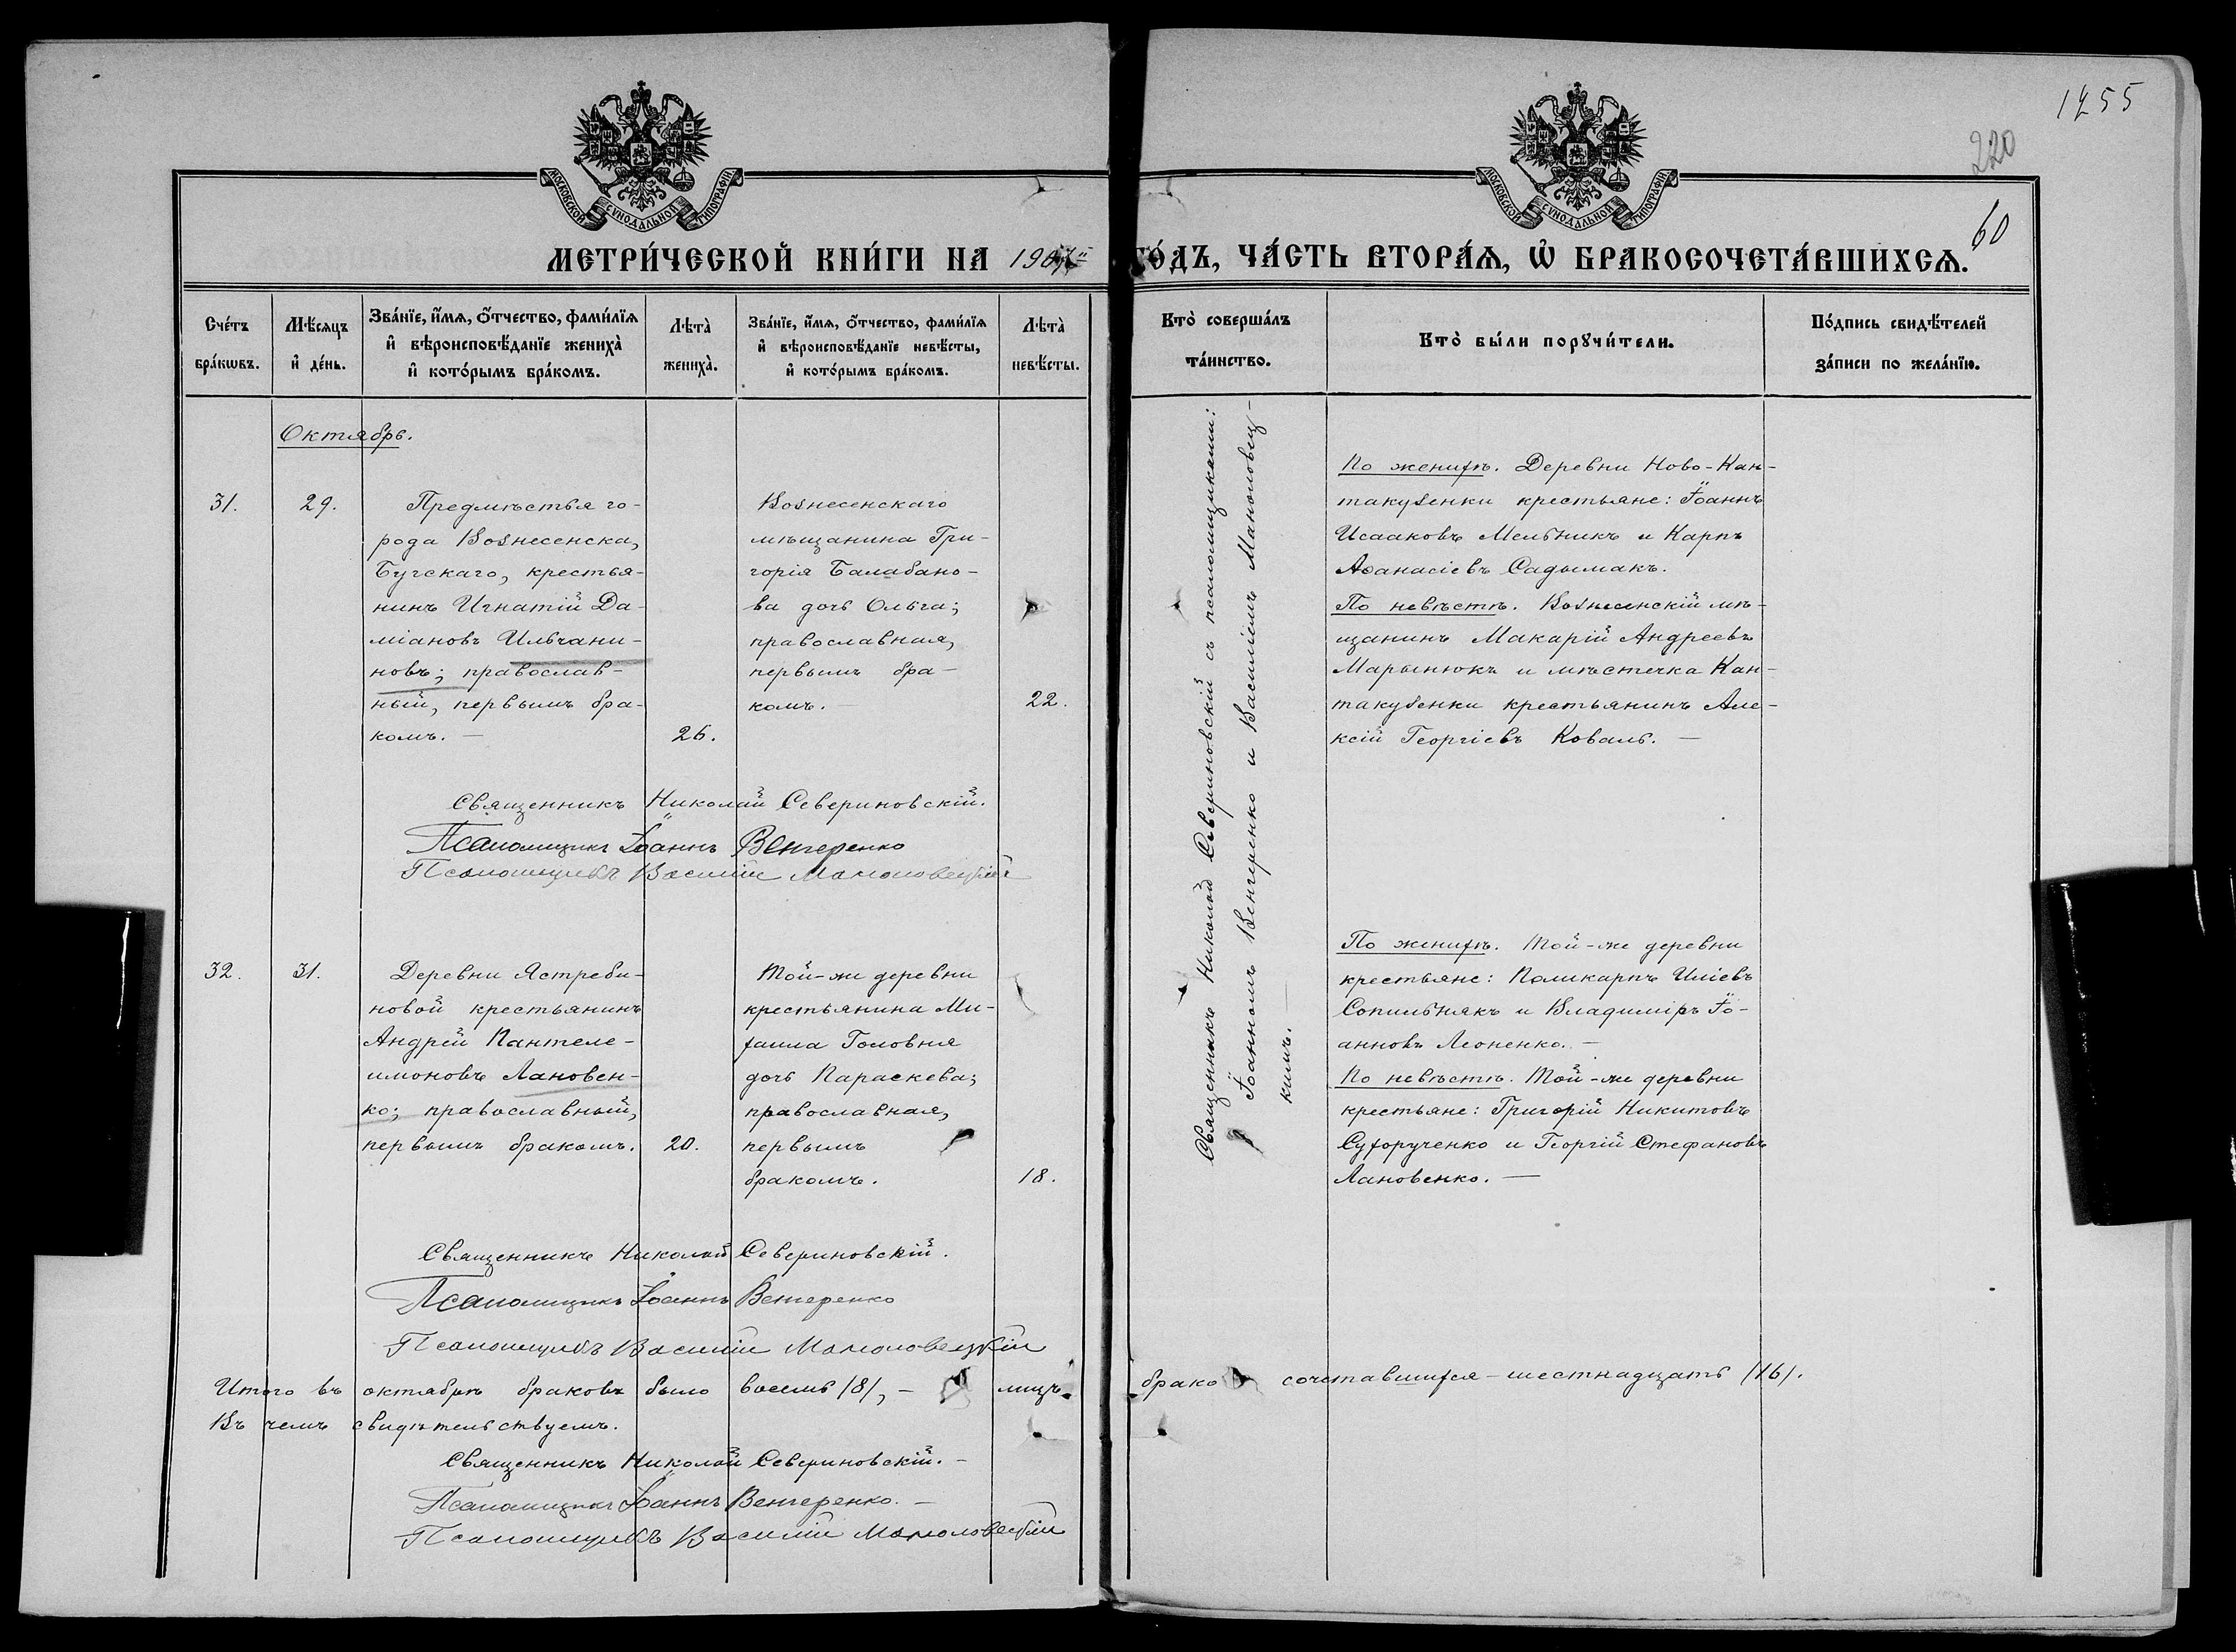 1255
220
60
МОСКОВСКОЙ СУНОДАЛЬНОЙ ТИПОГРАФІИ
МОСКОВСКОЙ СУНОДАЛЬНОЙ ТИПОГРАФІИ
МЕТРИ́ЧЕСКОЙ КНИ́ГИ НА 190 ГО́ДЪ, ЧА́СТЬ ВТОРА́Ѧ, Ѡ҆ БРАКОСОЧЕТА́ВШИХСѦ.
Сче́тъ бра́кѡвъ.
Мѣ́сяцъ и҆ де́нь.
Зва́нїе, и҆́мѧ, о҆́тчество, фами́лїѧ и҆ вѣроисповѣ́данїе жениха̀ и҆ кото́рымъ бра́комъ.
Лѣта̀ жениха̀.
Зва́нїе, и҆́мѧ, о҆́тчество, фами́лїѧ и҆ вѣроисповѣ́данїе невѣ́сты, и҆ кото́рымъ бра́комъ.
Лѣта̀ невѣ́сты.
Кто̀ соверша́лъ та́инство.
Кто̀ бы́ли порꙋчи́тели.
По́дпись свидѣ́телей за́писи по жела́нїю.
Октябрь.
31.
29.
Предмѣстья го-
рода Вознесенска,
Бугскаго, крестья-
нинъ Игнатій Да-
міановъ Ильчани-
новъ; православ-
ный, первымъ бра-
комъ. —
26.
Вознесенскаго
мѣщанина Гри-
горія Балабано-
ва дочь Ольга;
православная,
первымъ бра-
комъ. —
22.
Священникъ Николай Севериновскій съ псаломщиками:
Іоанномъ Венгеренко и Василіемъ Маномовец-
кимъ. —
По женихѣ. Деревни Ново-Кан-
такузенки крестьяне: Іоаннъ
Исааковъ Мельникъ и Карпъ
Аѳанасіевъ Садымакъ.
По невѣстѣ. Вознесенскій мѣ-
щанинъ Макарій Андреевъ
Марынюкъ и мѣстечка Кан-
такузенки крестьянинъ Але-
ксій Георгіевъ Коваль. —
Священникъ Николай Севериновскій.
Псаломщикъ Іоаннъ Венгеренко
Псаломщикъ Василій
32.
31.
Деревни Ястреби-
новой крестьянинъ
Андрей Пантеле-
имоновъ Лановен-
ко; православный,
первымъ бракомъ.
20.
Той-же деревни
крестьянина Ми-
хаила Головня
дочь Параскева;
православная,
первымъ
бракомъ.
18.
По женихѣ. Той-же деревни
крестьяне: Поликарпъ Иліевъ
Сопильнякъ и Владиміръ Іо-
анновъ Леоненко. —
По невѣстѣ. Той-же деревни
крестьяне: Григорій Никитовъ
Сухорученко и Георгій Стефановъ
Лановенко. —
Священникъ Николай Севериновскій.
Псаломщикъ Іоаннъ Венгеренко
Псаломщикъ Василій
Итого въ октябрѣ браковъ было восемь /8/, — лицъ брако сочетавшихся — шестнадцать /16/.
Въ чемъ свидѣтельствуемъ.
Священникъ Николай Севериновскій. —
Псаломщикъ Іоаннъ Венгеренко. —
Псаломщикъ Василій